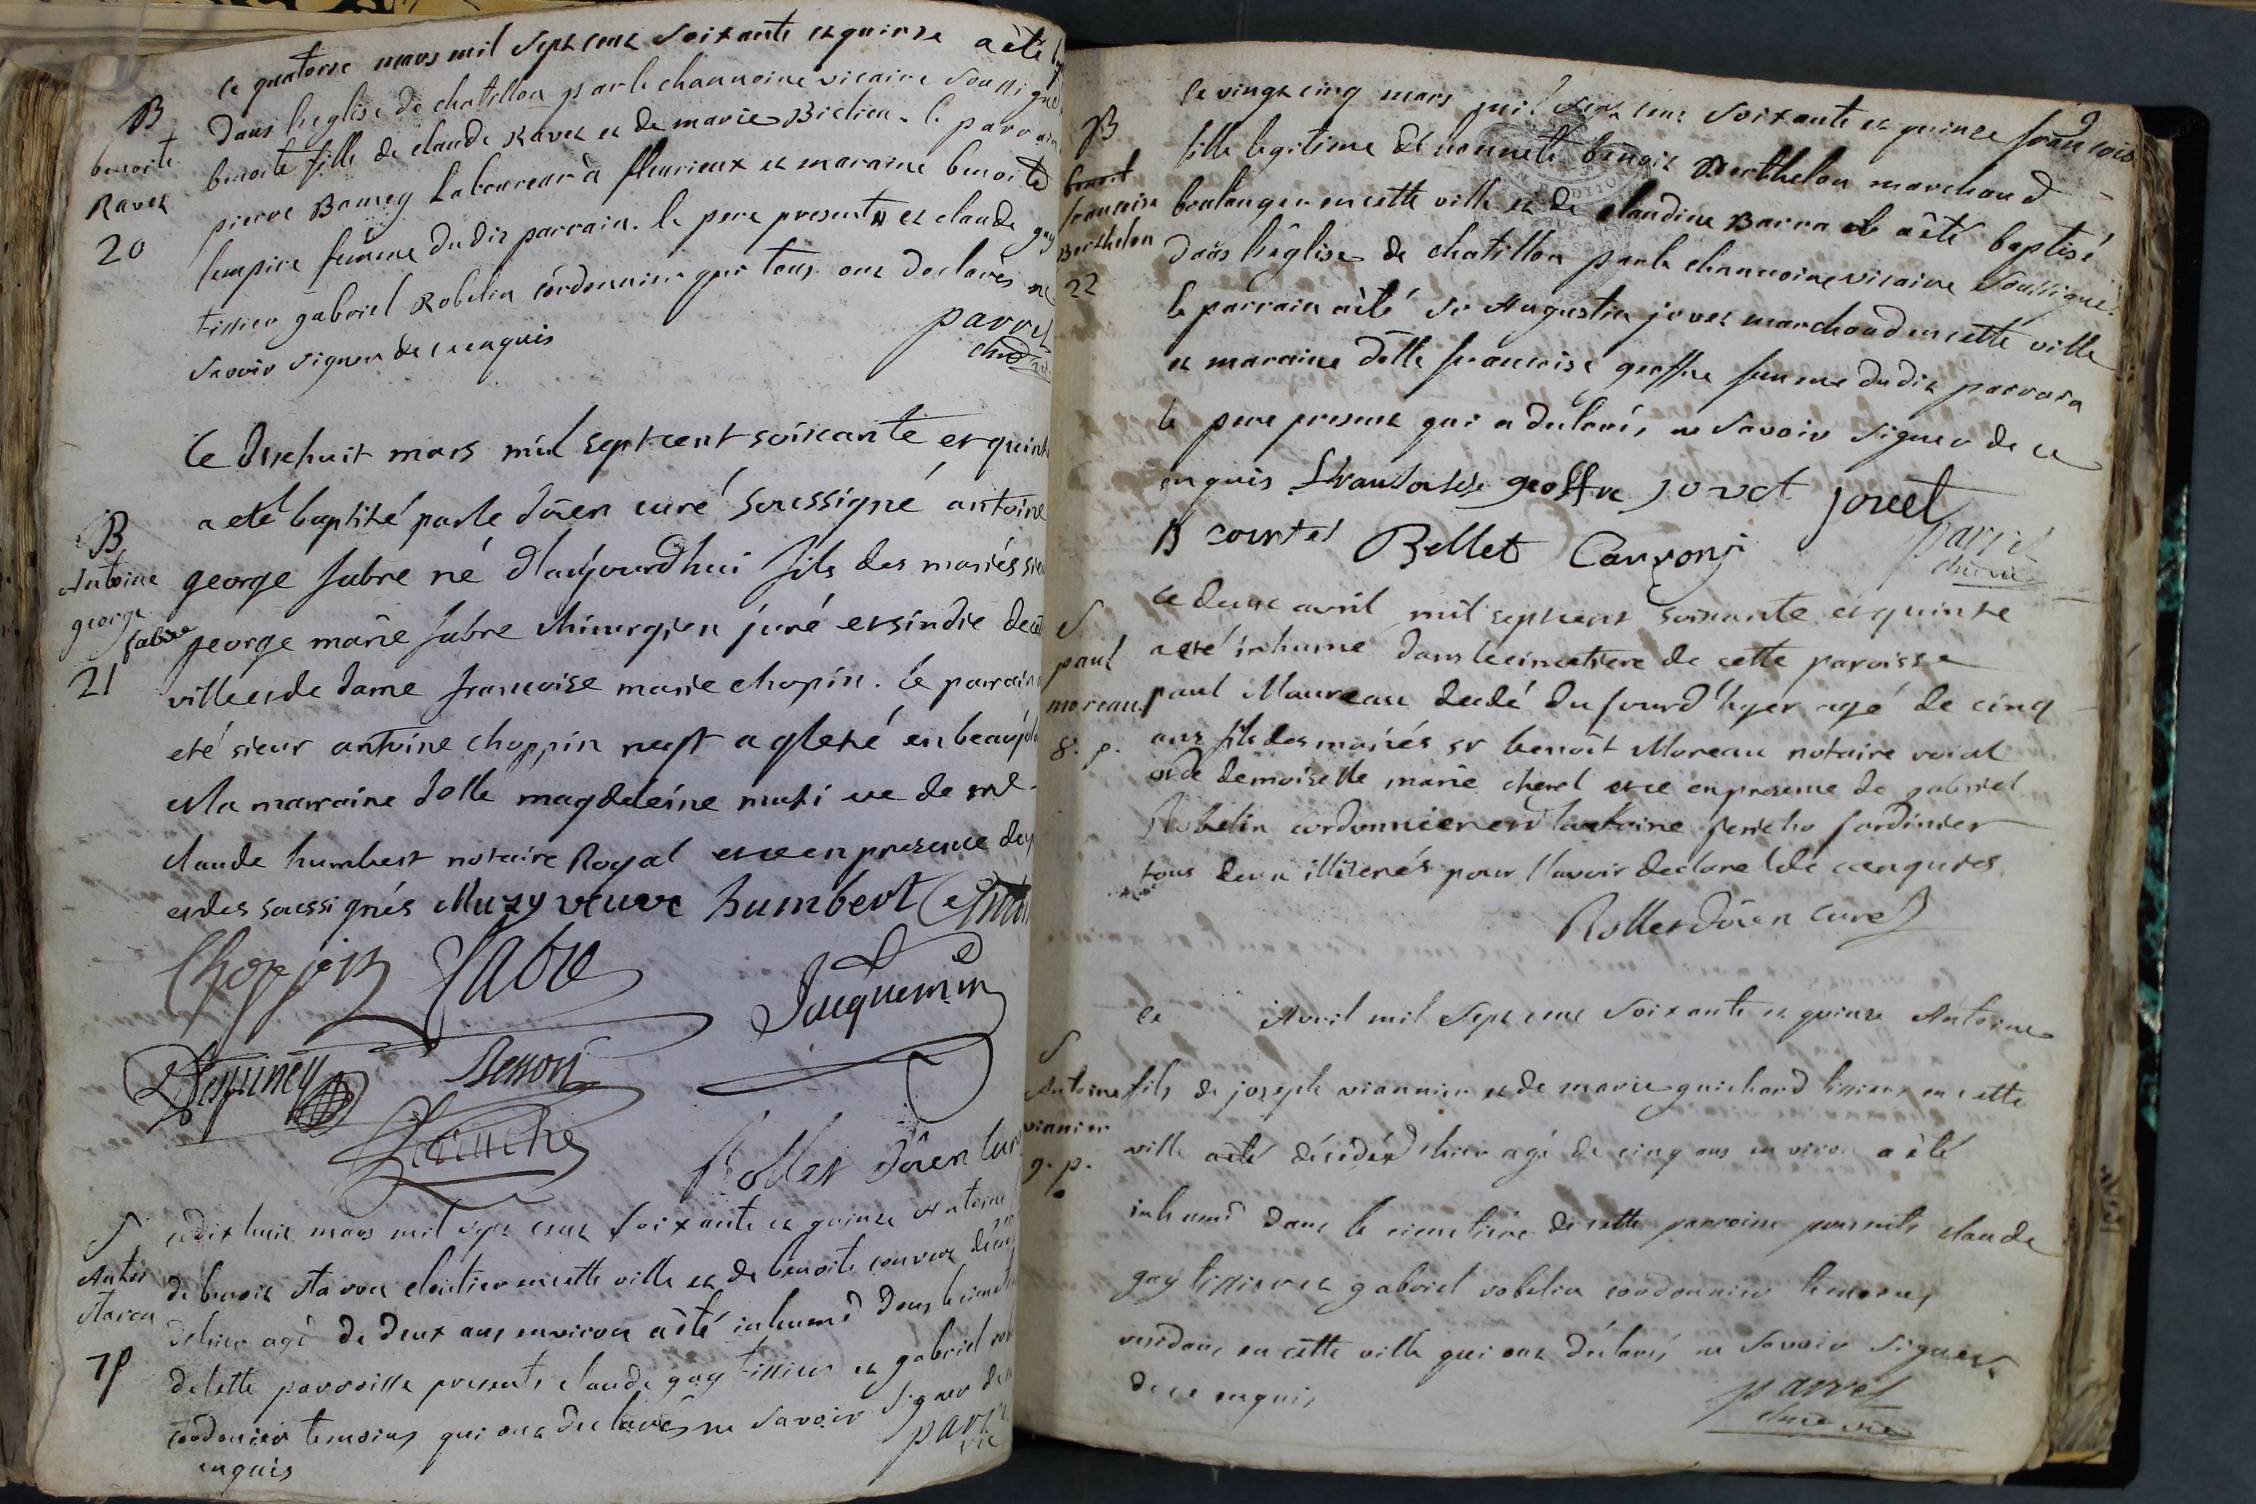 ce quatorze mars mil sept cent soixante et quinze a été
B
benoite
Ravet
20
dans l'eglise de chatillon par le channoine vicaire soussigné
benoite fille de claude Ravet et de marie Bichon. le parrain
pierre Laboureur à fleurieux et maraine benoite
lempire femme dudit parrain. le pere present et claude gay
tissier gabriel Robelin cordonnier qui tous ont declarés ne
savoir signer de ce enquis
parret
ce dixhuit mars mil sept cent soixante et quinze
B
Antoine
george
fabre
21
a eté baptisé par le doïen curé soussigné antoine
george fabre né d'aujourdhui fils des mariés sieur
george marie fabre chirurgien juré et sindic de cette
ville et de dame francoise marie chopin. le parrain
eté sieur antoine choppin negt a gleté en beaujolois
et la marraine dlle magdeleine muzi ve de me
claude humbert notaire Royal et ce en presence du
et des soussignés Muzy veuve humbert
Choppin fabre
Jacquemin
Despiney Besson
Rollet doïen curé
S
Antoi
7 p
ce dix huit mars mil sept cent soixante et quinze Antoine
de benoit cloutier en cette ville et de benoite
d'hier agé de deux ans environ a été inhumé dans le cimetiere
de cette parroisse presents claude gay tissier et gabriel
cordonier temoins qui ont declarés ne savoir signer de ce
enquis
parret
vic
9
le vingt cinq mars mil sept cent soixante et quinze francoise
B
benoit
francoise
Berthelon
22
fille legitime de honnete benoit Berthelon marchand
boulanger en cette ville et de claudine Barra a été baptisé
dans l'église de chatillon par le channoine vicaire soussigné
le parrain a été sr Augustin jovet marchand en cette ville
et maraine dlle francoise geoffre femme dudit parrain
le pere present qui a declaré ne savoir signer de ce
enquis francoise geoffre jovet jovet
B courtet Bellet Canrony
parret
chne vic
ce deux avril mil sept cent soixante et quinze
S
paul
moreau
8. p.
a eté inhumé dans le cimetiere de cette paroisse
paul Moureau decedé du jourd'hyer agé de cinq
ans fils des mariés sr benoit Moreau notaire roial
et de demoiselle marie cherel et ce en presence de gabriel
Robelin cordonnier et d'antoine pericho jardinier
tous deux illiterés pour l'avoir declaré de ce enquis
Rollet doïen curé
S
Antoine
vianier
9. p.
le Avril mil sept cent soixante et quinze Antoine
fils de joseph viannier et de marie guichard tissier en cette
ville a été décédé d'hier agé de cinq ans environ a été
inhumé dans le cimetiere de cette parroisse presents claude
gay tissier et gabriel robelin cordonnier temoins
residant en cette ville qui ont déclaré ne savoir signer
de ce enquis
parret
chne vic